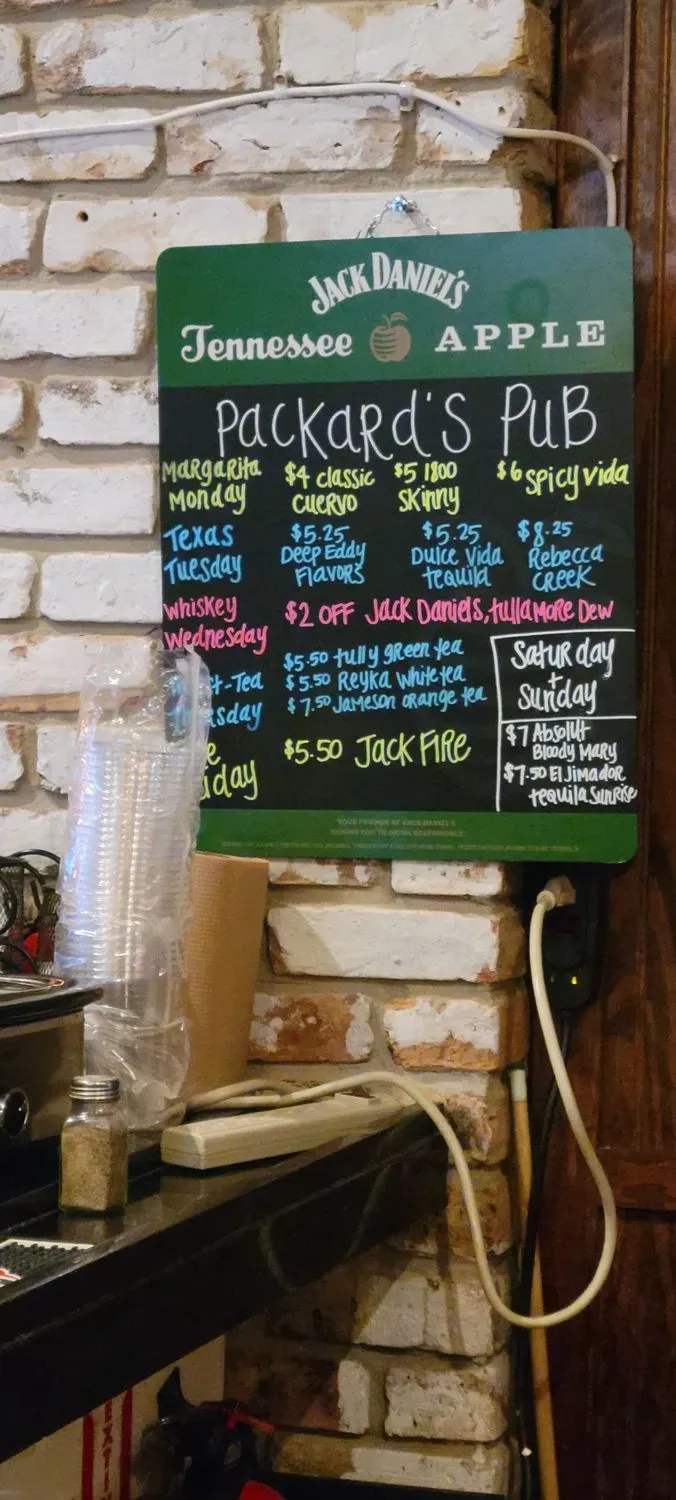 JACK DANIEL'S
Tennessee APPLE
Packard's Pub
Margarita Monday
$4 classic Cuervo
$5 1800 Skinny
$6 Spicy Vida
Texas Tuesday
$5.25 Deep Eddy Flavors
$5.25 Dulce Vida tequila
$8.25 Rebecca Creek
Whiskey Wednesday
$2 OFF Jack Daniels, tullamore Dew
-Tea
sday
$5.50 tully green tea
$5.50 Reyka White tea
$7.50 Jameson orange tea
iday
$5.50 Jack Fire
Saturday
+
Sunday
$7 Absolut
Bloody Mary
$7.50 El Jimador
tequila Sunrise
YOUR FRIENDS AT JACK DANIEL'S
REMIND YOU TO DRINK RESPONSIBLY.